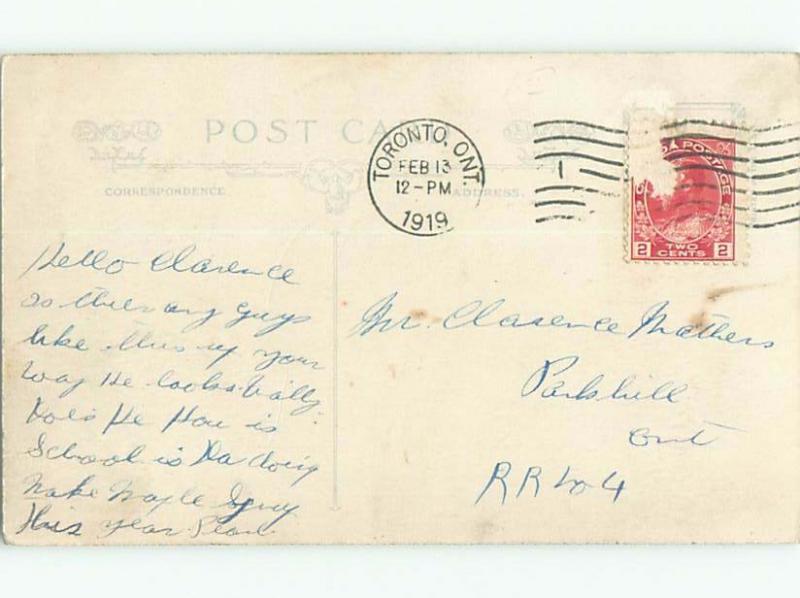 POST CA
CORRESPONDENCE
ADDRESS.
TORONTO, ONT.
FEB 13
12-PM
1919
1
DA POSTAGE
2 TWO CENTS 2
Hello Clarence
is ther any guys
like this up your
way He looks
Dols He How is
School is Da doing
make Maple Syruy
this year
Mr. Clarence Mathers
Parkhill
Ont
RR No 4